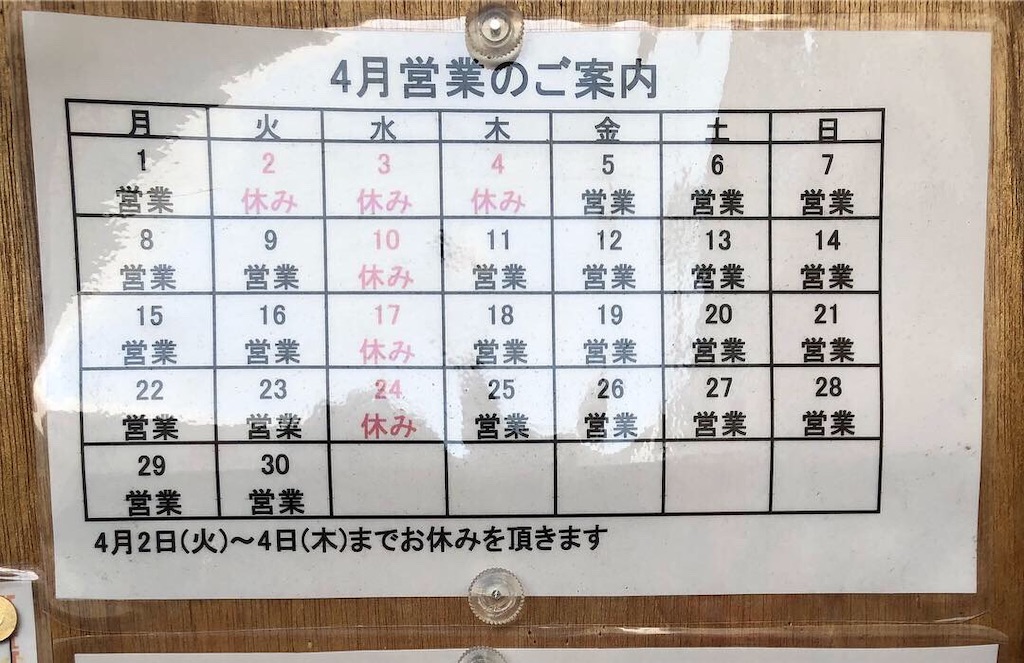 4月営業のご案内
月 火 水 木 金 土 日
1 2 3 4 5 6 7
営業 休み 休み 休み 営業 営業 営業
8 9 10 11 12 13 14
営業 営業 休み 営業 営業 営業 営業
15 16 17 18 19 20 21
営業 営業 休み 営業 営業 営業 営業
22 23 24 25 26 27 28
営業 営業 休み 営業 営業 営業 営業
29 30
営業 営業
4月2日(火)～4日(木)までお休みを頂きます